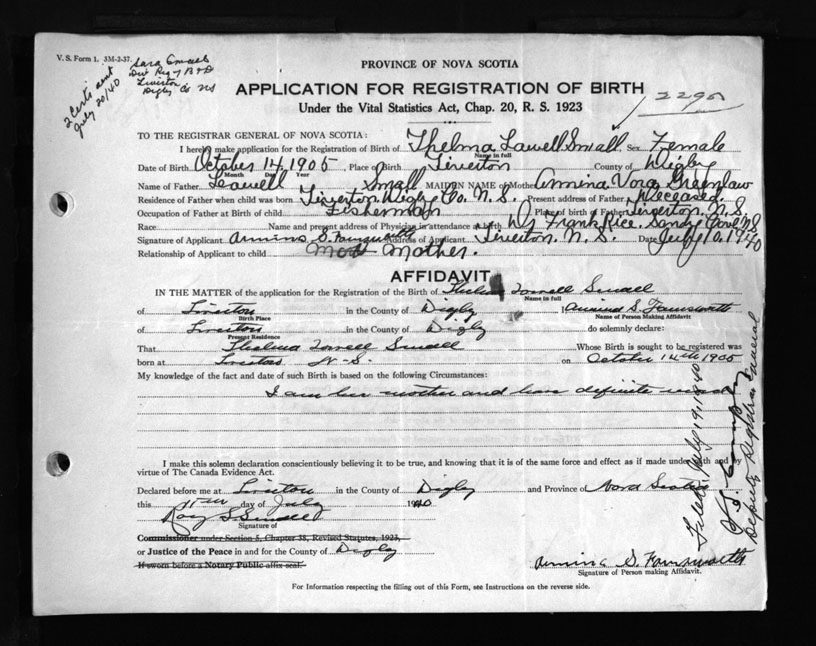 V. S. Form 1. 3M-2-37.
2 Certs sent
July 20/40
Sara Small
Div Reg of B & D
Tiverton
Digby Co NS
PROVINCE OF NOVA SCOTIA
APPLICATION FOR REGISTRATION OF BIRTH
Under the Vital Statistics Act, Chap. 20, R. S. 1923
TO THE REGISTRAR GENERAL OF NOVA SCOTIA:
I hereby make application for the Registration of Birth of Thelma Lawell Small Sex Female
Name in full
Date of Birth October 14, 1905, Place of Birth Tiverton County of Digby
Month Day Year
Name of Father Small MAIDEN NAME of Mother Armina Vora Greenlaw
Residence of Father when child was born Tiverton Digby Co. N. S. Present address of Father Deceased.
Occupation of Father at Birth of child Fisherman Place of birth of Father Tiverton N. S.
Race Name and present address of Physician in attendance at birth Dr Frank Rice. Sandy Cove N.S.
Signature of Applicant Armina S. Farnsworth Address of Applicant Tiverton N. S. Date July 10, 1940
Relationship of Applicant to child Mother.
AFFIDAVIT
IN THE MATTER of the application for the Registration of the Birth of Thelma Small
Name in full
of Tiverton in the County of Digby I Armina S. Farnsworth
Birth Place Name of Person Making Affidavit
of Tiverton in the County of Digby do solemnly declare:
Present Residence
That Thelma Small Whose Birth is sought to be registered was
born at Tiverton N-S. on October 14th 1905
My knowledge of the fact and date of such Birth is based on the following Circumstances:
I am her mother and have definite
I make this solemn declaration conscientiously believing it to be true, and knowing that it is of the same force and effect as if made under oath and by
virtue of The Canada Evidence Act.
Declared before me at Tiverton in the County of Digby and Province of Nova Scotia
this day of July 1940
Ray S Small
Signature of
Commissioner under Section 5, Chapter 38, Revised Statutes, 1923,
or Justice of the Peace in and for the County of Digby
If sworn before a Notary Public affix seal.
Armina S. Farnsworth
Signature of Person making Affidavit.
For Information respecting the filling out of this Form, see Instructions on the reverse side.
Filed July 19, 1940
Deputy Registrar General